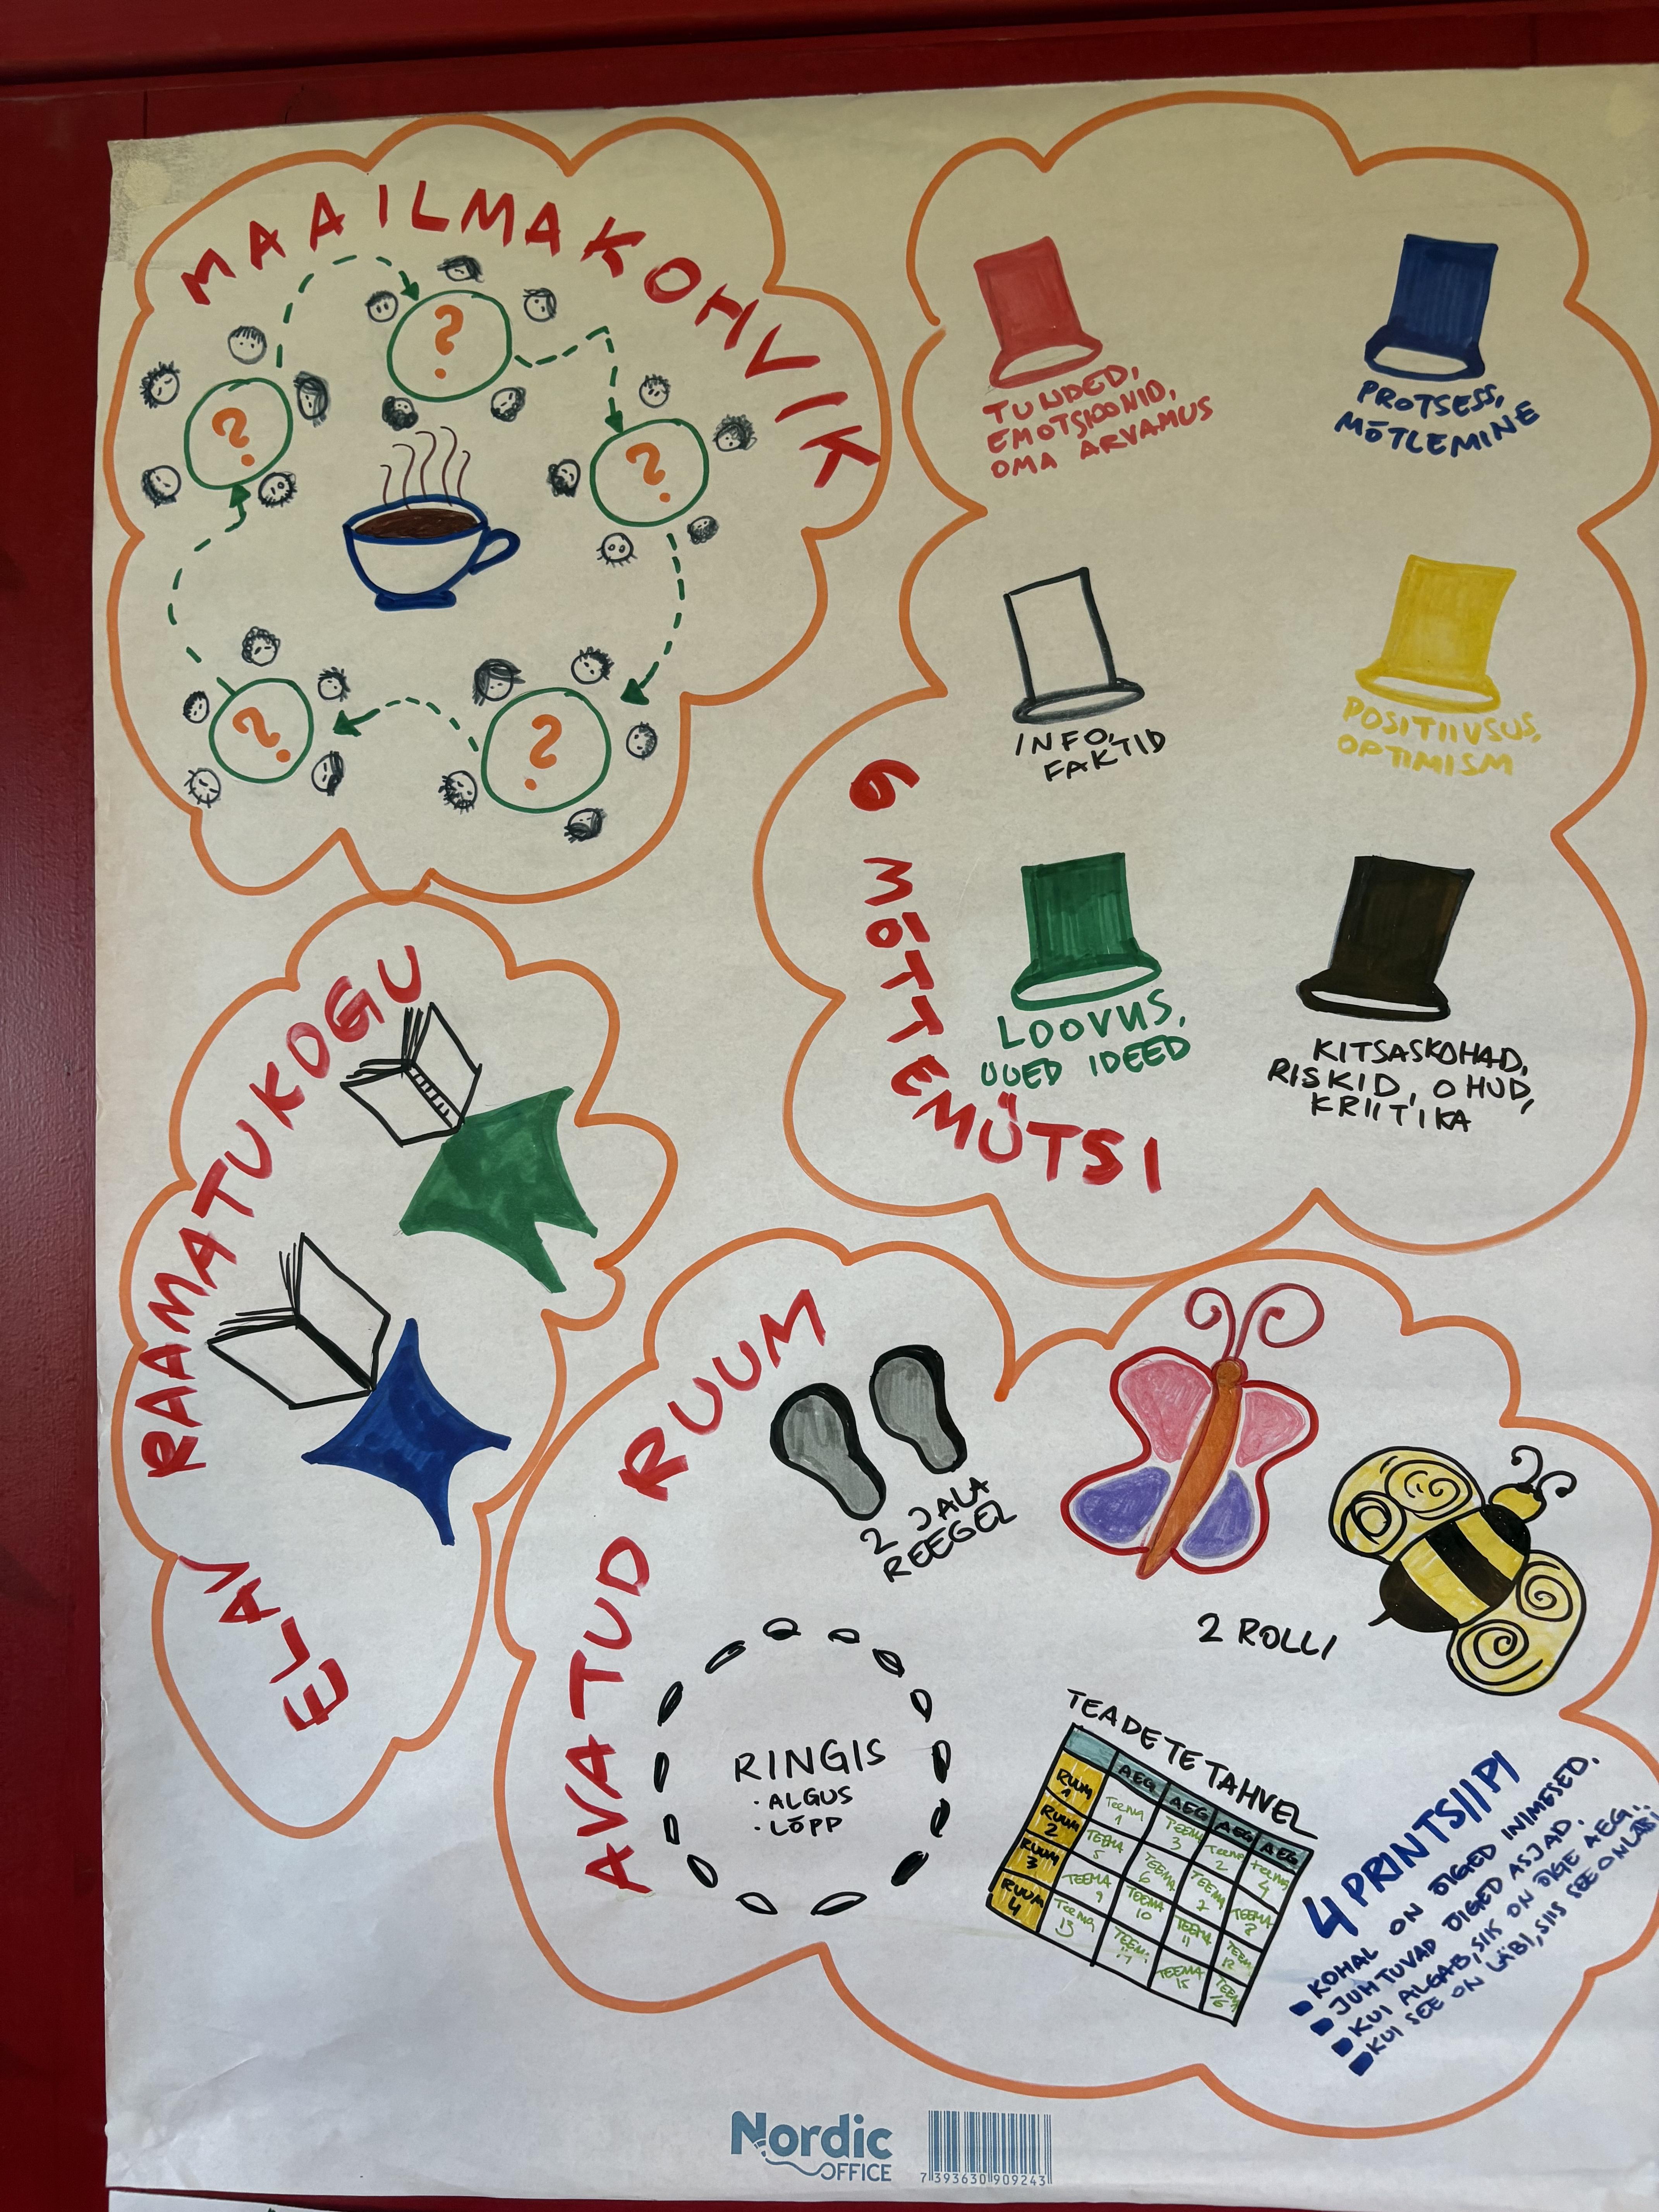 MAAILMAKOHVIK
?
?
?
?
?
TUNDED,
EMOTSIOONID,
OMA ARVAMUS
PROTSESS,
MÕTLEMINE
INFO,
FAKTID
POSITIIVSUS,
OPTIMISM
LOOVUS,
UUED IDEED
KITSASKOHAD,
RISKID, OHUD,
KRIITIKA
6 MÕTTEMÜTSI
ELAV RAAMATUKOGU
AVATUD RUUM
2 JALA
REEGEL
2 ROLLI
RINGIS
· ALGUS
· LÕPP
TEADETETAHVEL
AEG AEG AEG AEG
RUUM 1 TEEMA 1 TEEMA 3 TEEMA 2 TEEMA 4
RUUM 2 TEEMA 5 TEEMA 6 TEEMA 7 TEEMA 8
RUUM 3 TEEMA 9 TEEMA 10 TEEMA 11 TEEMA 12
RUUM 4 TEEMA 13 TEEMA TEEMA 15 TEEMA 16
4 PRINTSIIPI
KOHAL ON ÕIGED INIMESED.
JUHTUVAD ÕIGED ASJAD.
KUI ALGAB, SIIS ON ÕIGE AEG.
KUI SEE ON LÄBI, SIIS SEE ON LÄBI
Nordic
OFFICE
7 393630 909243